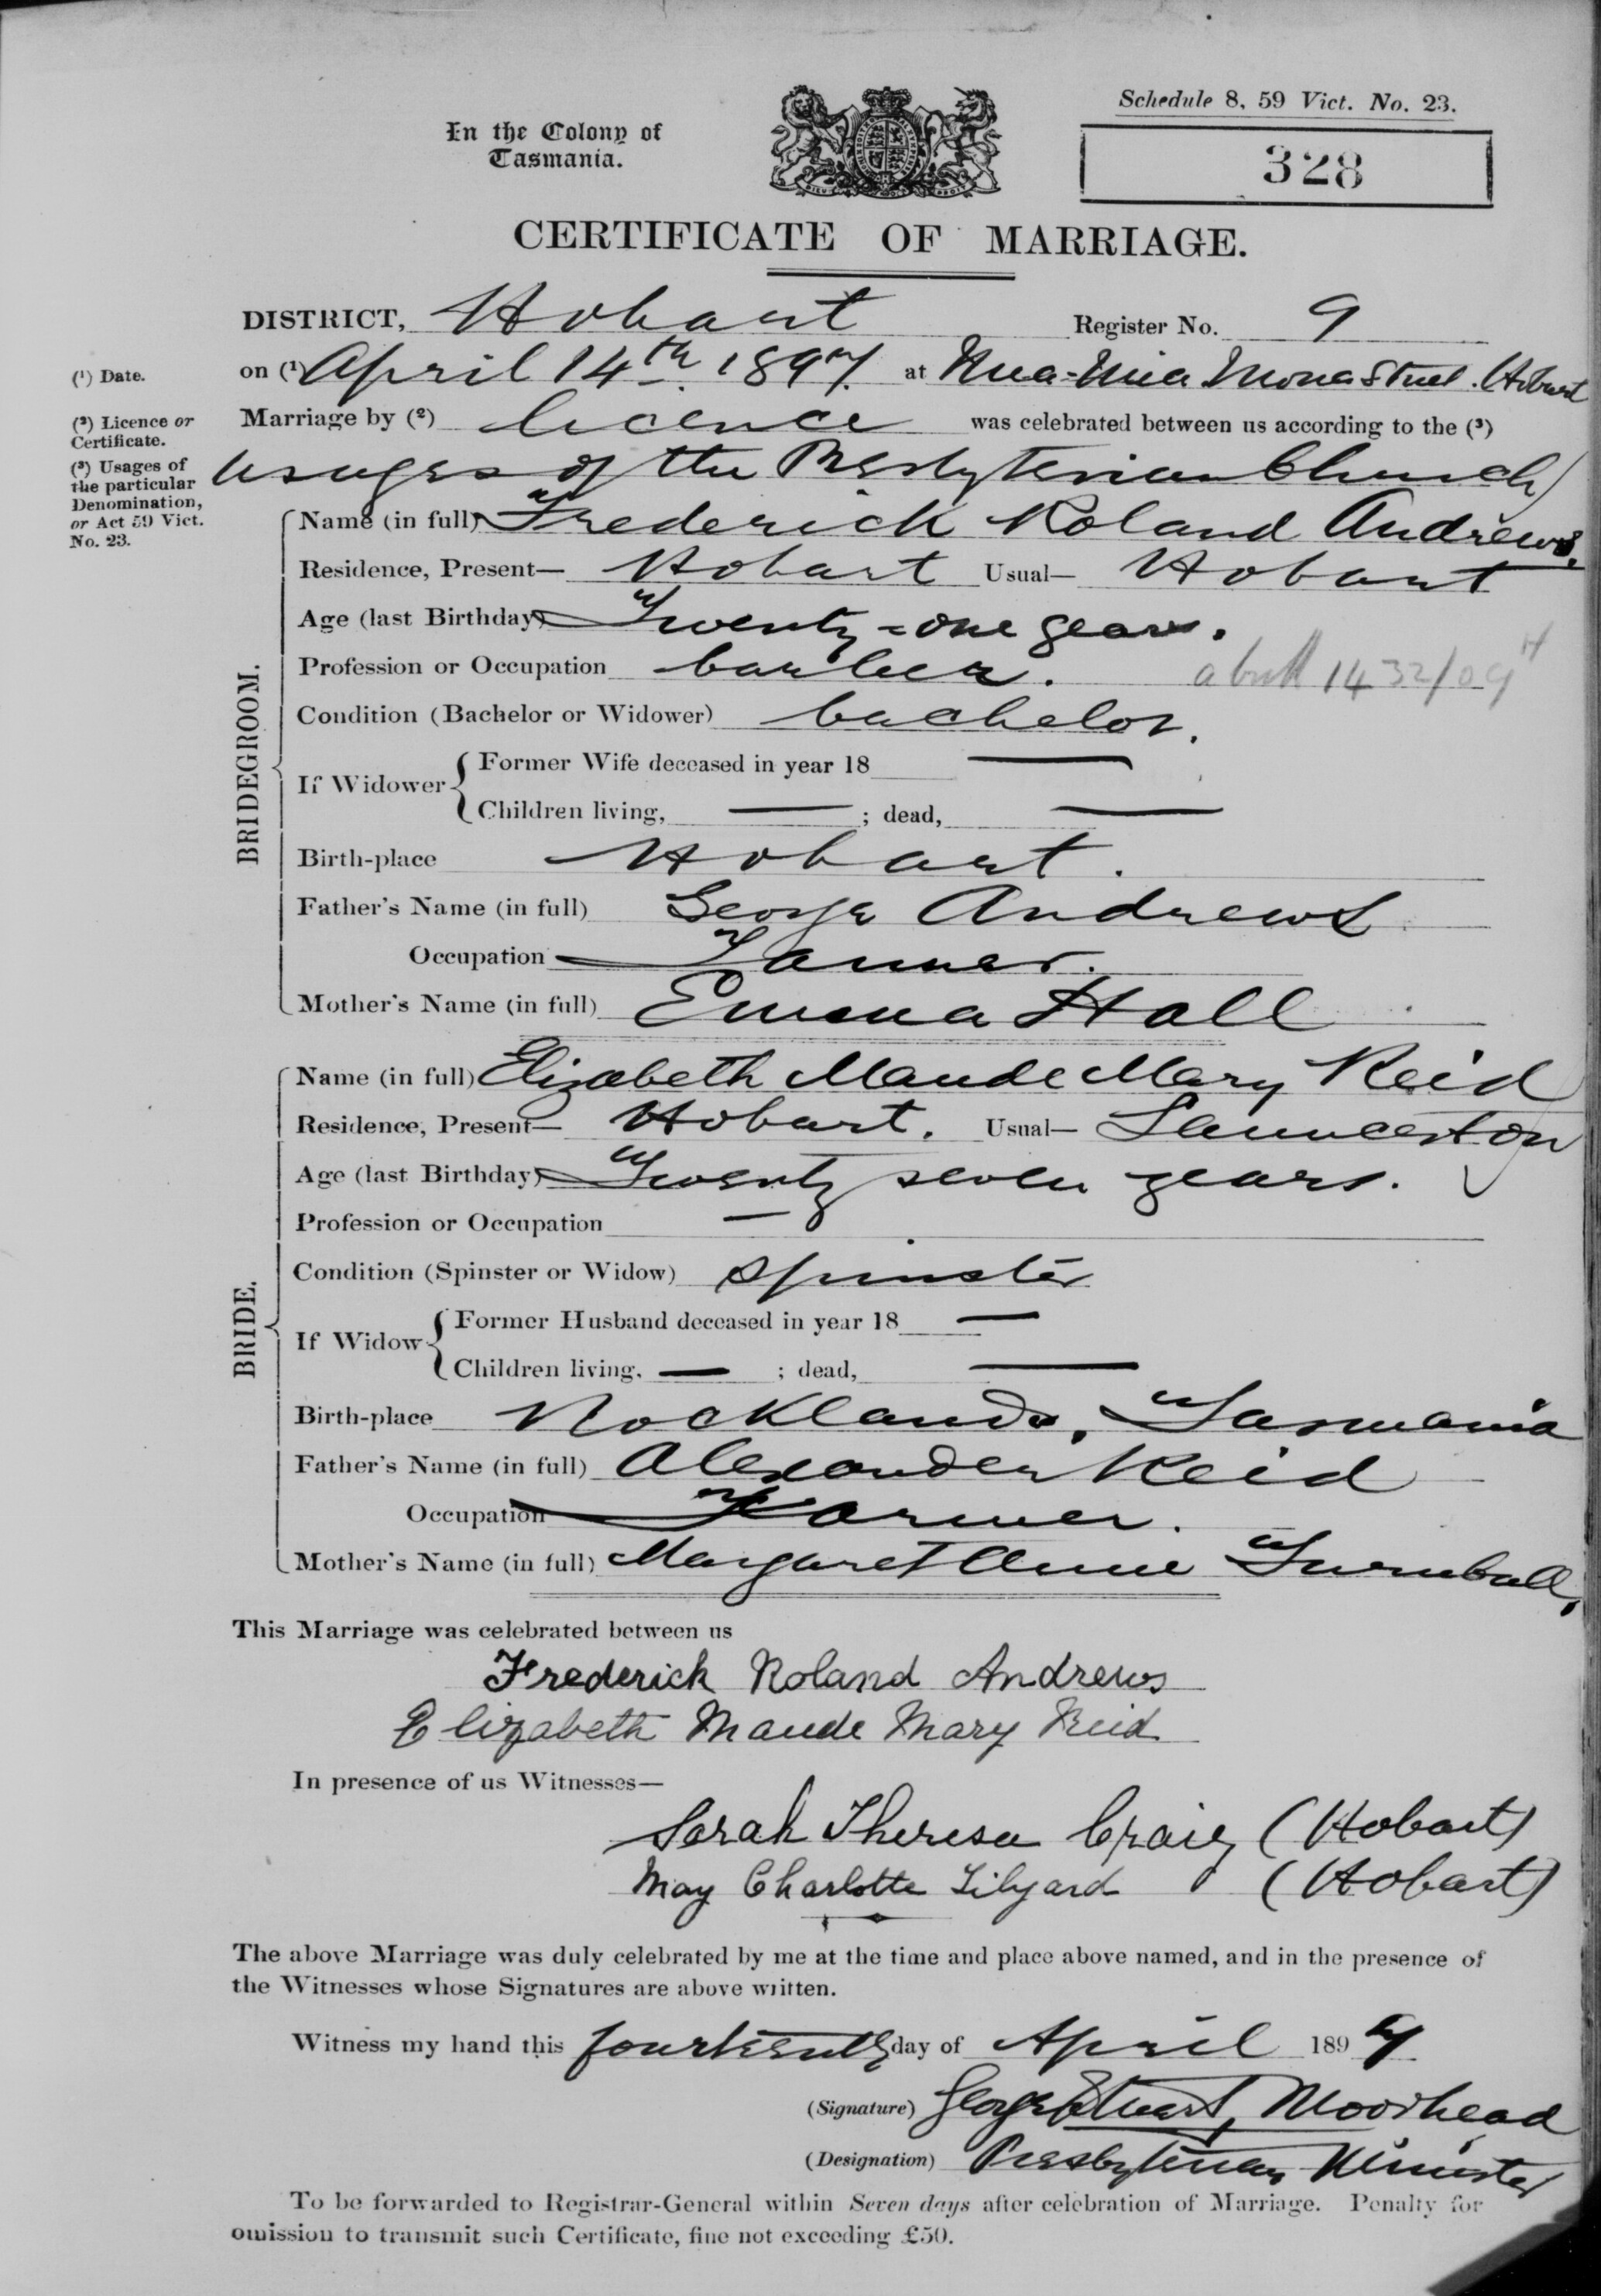 Schedule 8, 59 Vict. No. 23.
In the Colony of
Tasmania.
328
CERTIFICATE OF MARRIAGE.
DISTRICT, Hobart Register No. 9
(1) Date. on (1) April 14th 1897. at Mona Street. Hobart
(2) Licence or Certificate. Marriage by (2) licence was celebrated between us according to the (3)
(3) Usages of the particular Denomination, or Act 59 Vict. No. 23. usages of the Presbyterian Church
BRIDEGROOM.
Name (in full) Frederick Roland Andrews.
Residence, Present— Hobart Usual— Hobart
Age (last Birthday) Twenty-one years.
Profession or Occupation barber. 1432/09
Condition (Bachelor or Widower) bachelor.
If Widower
Former Wife deceased in year 18 —
Children living, — ; dead, —
Birth-place Hobart.
Father's Name (in full) George Andrews
Occupation Tanner.
Mother's Name (in full) Emma Hall
BRIDE.
Name (in full) Elizabeth Maude Mary Reid
Residence, Present— Hobart. Usual— Launceston
Age (last Birthday) Twenty seven years.
Profession or Occupation —
Condition (Spinster or Widow) Spinster
If Widow
Former Husband deceased in year 18 —
Children living, — ; dead, —
Birth-place Rocklands, Tasmania
Father's Name (in full) Alexander Reid
Occupation Farmer.
Mother's Name (in full) Margaret Annie Turnbull.
This Marriage was celebrated between us
Frederick Roland Andrews
Elizabeth Maude Mary Reid
In presence of us Witnesses—
Sarah Theresa Craig (Hobart)
May Charlotte Lilyard (Hobart)
The above Marriage was duly celebrated by me at the time and place above named, and in the presence of
the Witnesses whose Signatures are above written.
Witness my hand this fourteenth day of April 1897
(Signature) George Stuart Moorhead
(Designation) Presbyterian Minister
To be forwarded to Registrar-General within Seven days after celebration of Marriage. Penalty for
omission to transmit such Certificate, fine not exceeding £50.